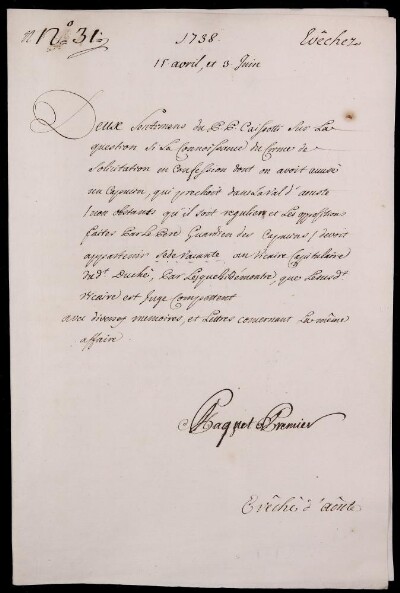 N.º 31. 1738. Evêchez
15 avril, et 3 Juin
Deux Sentimens du P. P. Caissotti Sur La
question Si La Connoissance du Crime de
Solicitation en Confession dont on avoit accusé
un Capucin, qui prechoit dans La Val d'aouste
(non obstants qu'il soit regulier, et Les oppositions
faites Par Le Pere Guardien des Capucins) devoit
appartenir Sede Vacante au Vicaire Capitulaire
du dt. Duché, Par Lesquels demontre, que Le susdt.
Vicaire est Juge Competent
avec diverses memoires, et Lettres concernant La même
affaire
Paquet Premier
Evêché d'aôuste